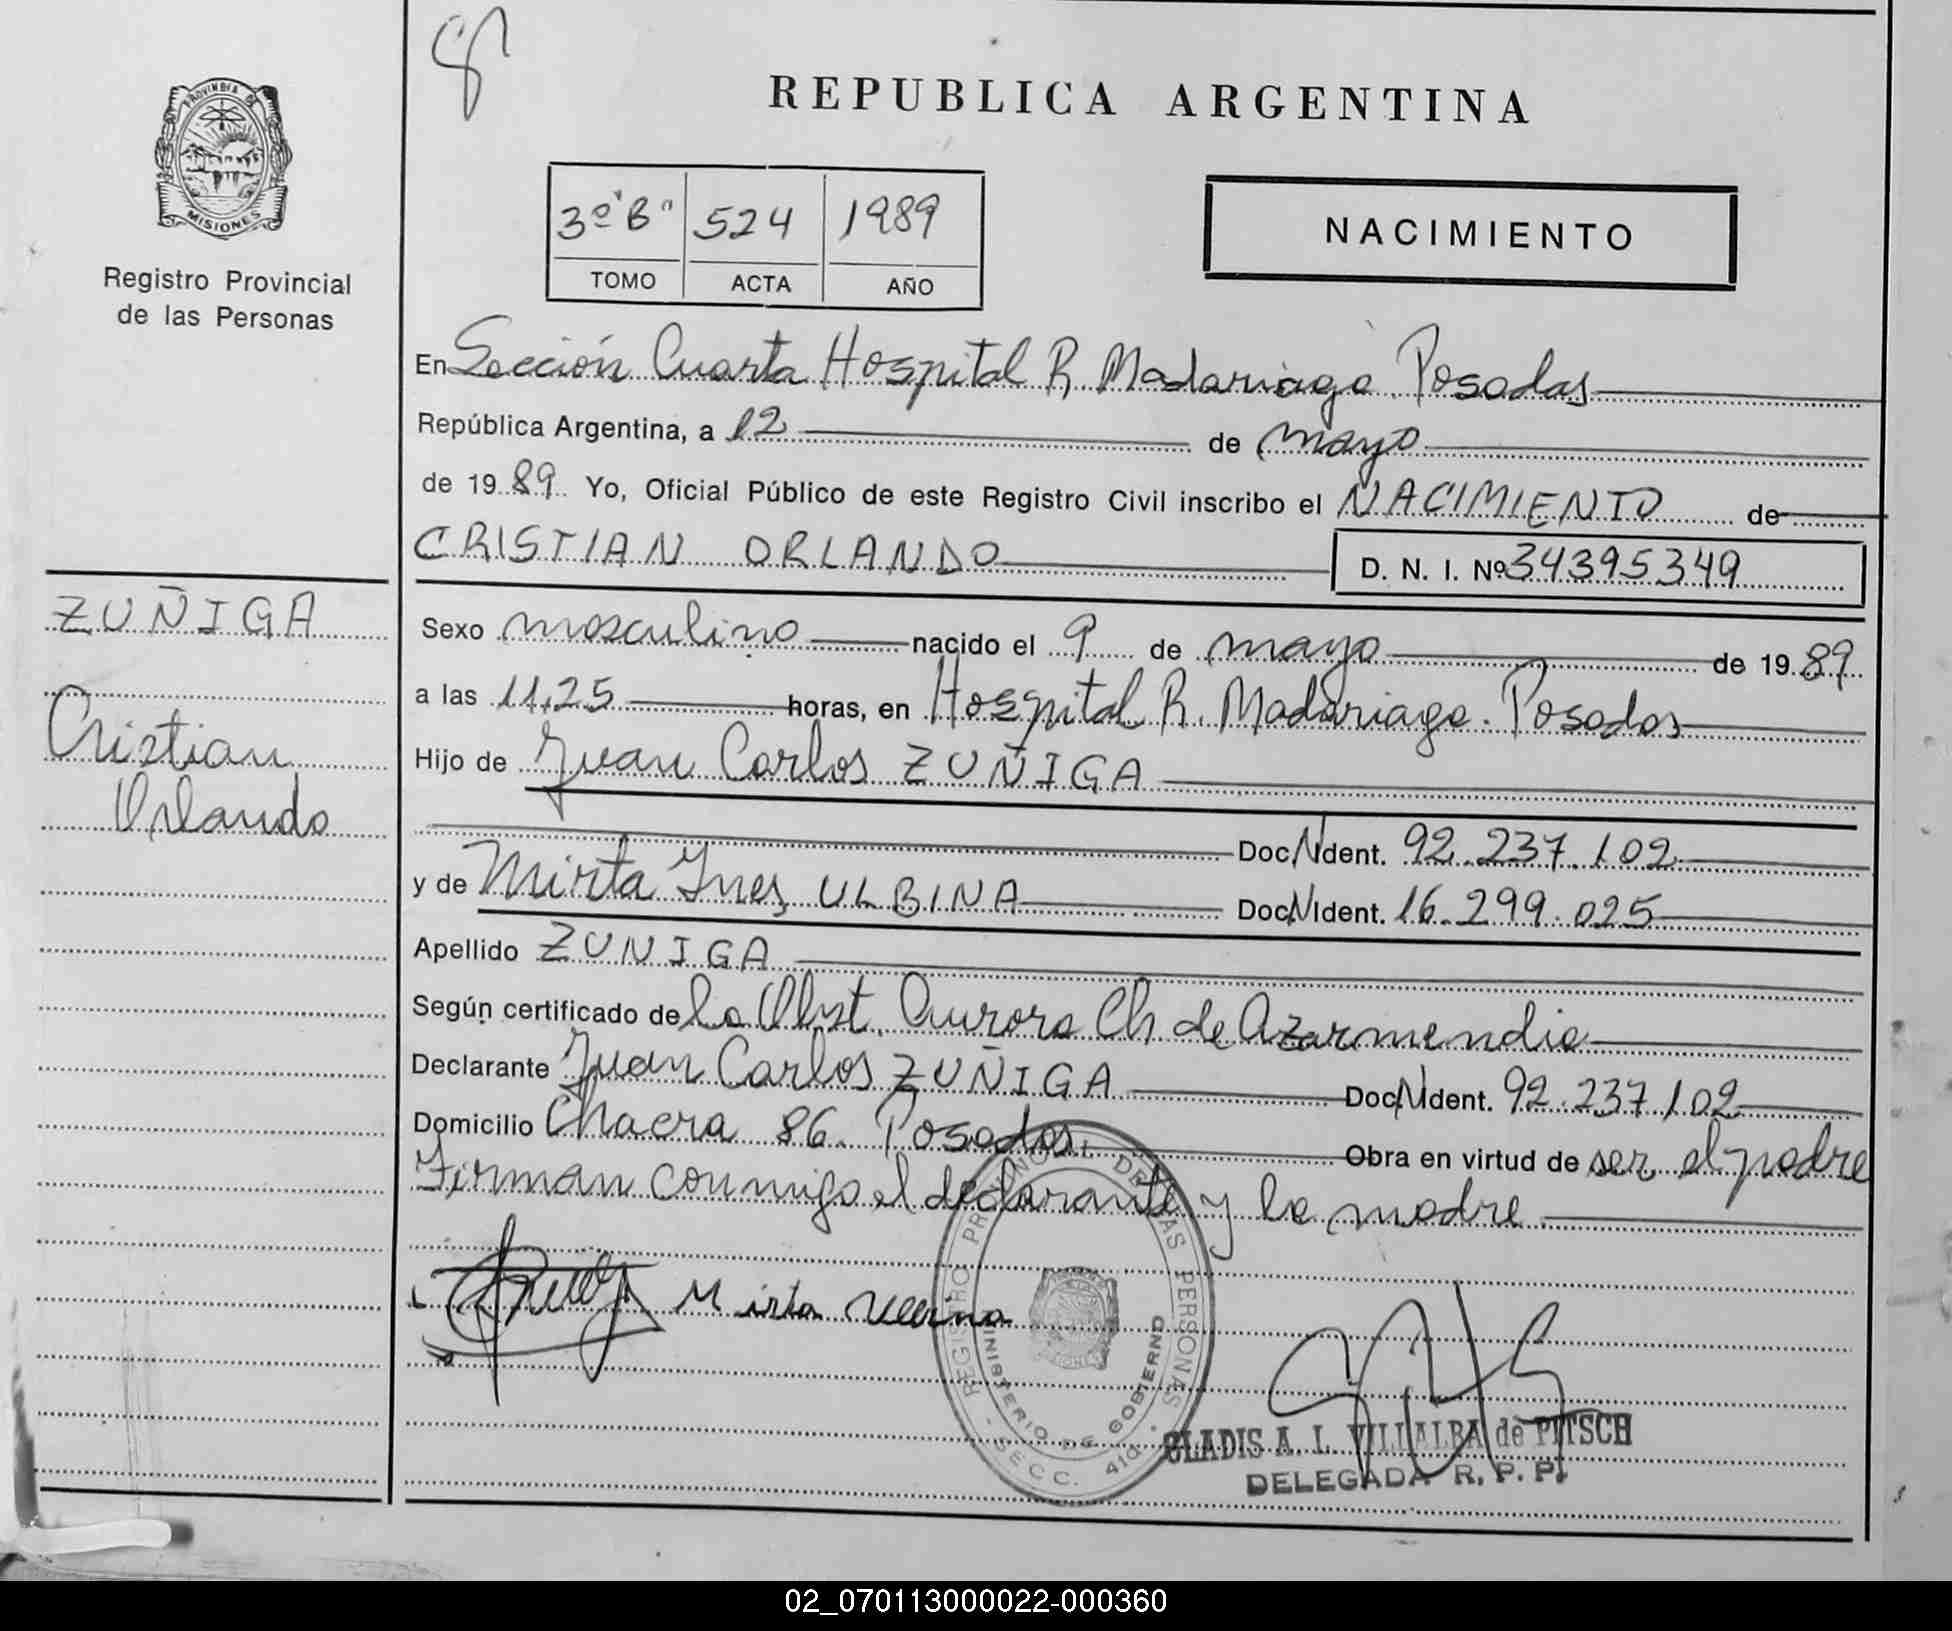 REPUBLICA ARGENTINA
PROVINCIA DE
MISIONES
Registro Provincial
de las Personas
3º "B" 524 1989
TOMO ACTA AÑO
NACIMIENTO
En Sección Cuarta Hospital R. Madariaga. Posadas
República Argentina, a 12 de mayo
de 1989. Yo, Oficial Público de este Registro Civil inscribo el NACIMIENTO de
CRISTIAN ORLANDO D. N. I. Nº 34395349
ZUÑIGA
Cristian
Orlando
Sexo masculino nacido el 9 de mayo de 1989
a las 11,25 horas, en Hospital R. Madariaga. Posadas
Hijo de Juan Carlos ZUÑIGA
Doc.N.Ident. 92.237.102
y de Mirta Ines ULBINA Doc.N.Ident. 16.299.025
Apellido ZUÑIGA
Según certificado de la Obst. Aurora Ch de Azarmendia
Declarante Juan Carlos ZUÑIGA Doc.N.Ident. 92.237.102
Domicilio Chacra 86. Posadas. Obra en virtud de ser el padre
Firman conmigo el declarante y la madre
Mirta
REGISTRO PROVINCIAL DE LAS PERSONAS
MINISTERIO DE GOBIERNO
SECC. 4ta.
GLADIS A. I. VILLALBA de PITSCH
DELEGADA R. P. P.
02_070113000022-000360